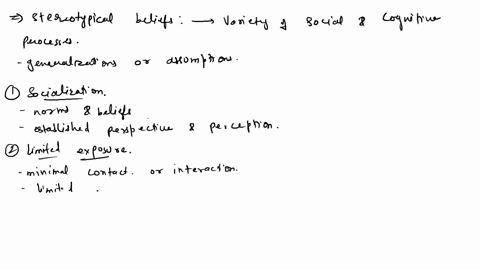 ⇒ Stereotypical beliefs: ⟶ Variety of social & cognitive
processes.
- generalizations or assumptions.
① Socialization.
- norms & beliefs
- established perspective & perception.
② Limited exposure.
- minimal contact or interaction.
- limited